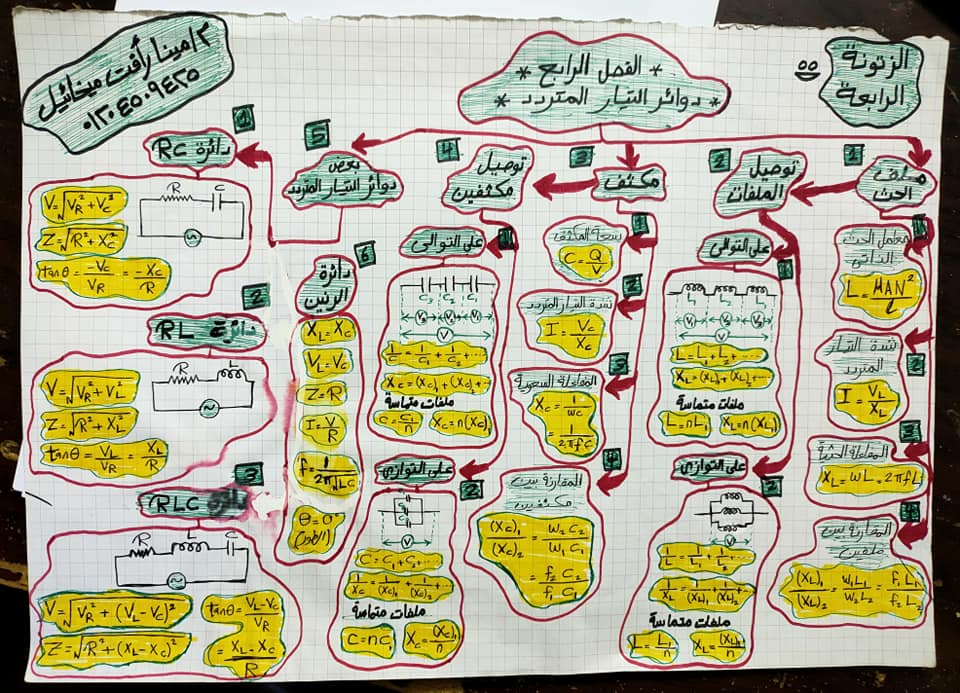 الزتونة
الرابعة
* الفصل الرابع *
* دوائر التيار المتردد *
م/مينا رأفت ميخائيل
٠١٢٠٤٥٠٩٤٢٥
1
ملف
الحث
1
معامل الحث
الذاتى
L = μAN² / l
2
شدة التيار
المتردد
I = V_L / X_L
3
المفاعلة الحثية
X_L = ωL = 2πfL
4
المقارنة بين
ملفين
(X_L)₁ / (X_L)₂ = ω₁L₁ / ω₂L₂ = f₁L₁ / f₂L₂
2
توصيل
الملفات
1
على التوالى
L₁ L₂ L₃
V₁ V₂ V₃
V
L = L₁ + L₂ + ...
X_L = (X_L)₁ + (X_L)₂ + ...
ملفات متماسة
L = nL₁
X_L = n(X_L)₁
2
على التوازى
V
1/L = 1/L₁ + 1/L₂ + ...
1/X_L = 1/(X_L)₁ + 1/(X_L)₂ + ...
ملفات متماسة
L = L₁ / n
X_L = (X_L)₁ / n
3
مكثف
1
سعة المكثف
C = Q / V
2
شدة التيار المتردد
I = V_C / X_C
3
المفاعلة السعوية
X_C = 1 / ωC
= 1 / 2πfC
4
المقارنة بين
مكثفين
(X_C)₁ / (X_C)₂ = ω₂C₂ / ω₁C₁
= f₂C₂ / f₁C₁
4
توصيل
مكثفين
1
على التوالى
C₁ C₂ C₃
V₁ V₂ V₃
V
1/C = 1/C₁ + 1/C₂ + ...
X_C = (X_C)₁ + (X_C)₂ + ...
ملفات متماسة
C = C₁ / n
X_C = n(X_C)₁
2
على التوازى
V
C = C₁ + C₂ + ...
1/X_C = 1/(X_C)₁ + 1/(X_C)₂ + ...
ملفات متماسة
C = nC₁
X_C = (X_C)₁ / n
5
بعض
دوائر التيار المتردد
1
دائرة RC
R C
V = √V_R² + V_C²
Z = √R² + X_C²
tanθ = -V_C / V_R = -X_C / R
2
دائرة RL
R L
V = √V_R² + V_L²
Z = √R² + X_L²
tanθ = V_L / V_R = X_L / R
3
RLC
R L C
V = √V_R² + (V_L - V_C)²
Z = √R² + (X_L - X_C)²
tanθ = V_L - V_C / V_R
= X_L - X_C / R
6
دائرة
الرنين
X_L = X_C
V_L = V_C
Z = R
I = V / R
f = 1 / 2π√LC
θ = 0°